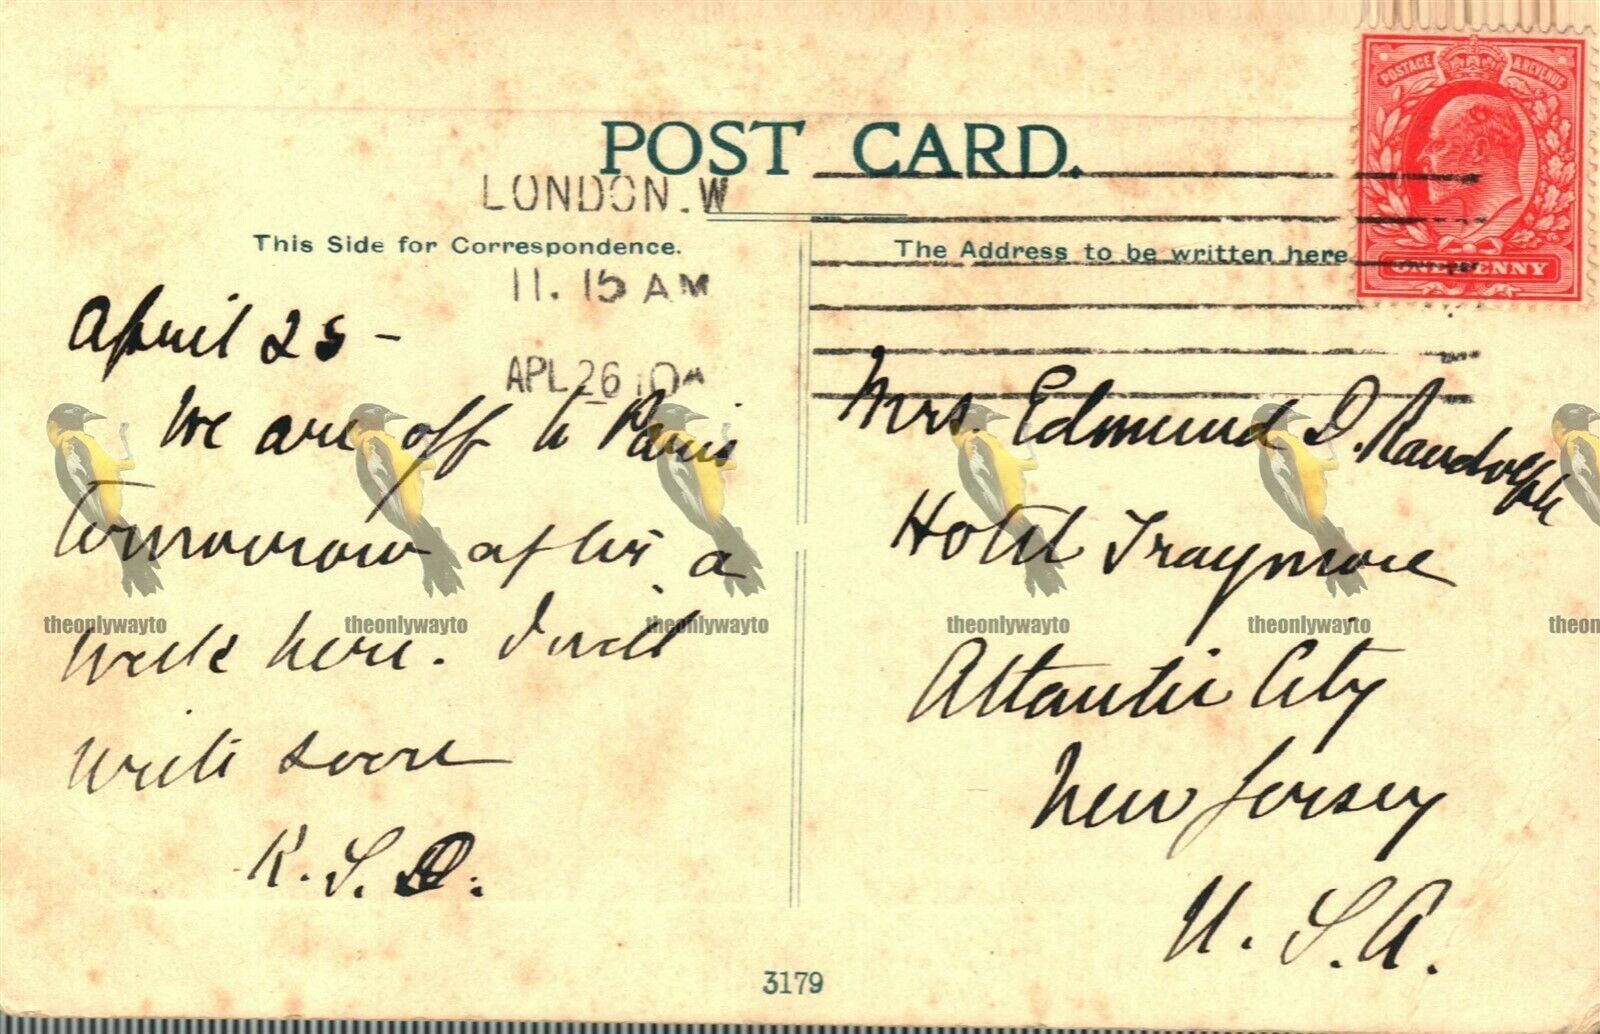 POSTAGE & REVENUE
ONE PENNY
POST CARD.
LONDON. W
11. 15 AM
APL 26 10
This Side for Correspondence.
The Address to be written here
April 25 -
We are off to Paris
tomorrow after a
week here. I will
write soon
K. S.
Mrs. Edmund D. Randolph
Hotel Traymore
Atlantic City
New Jersey
U. S. A.
3179
theonlywayto theonlywayto theonlywayto theonlywayto theonlywayto theon